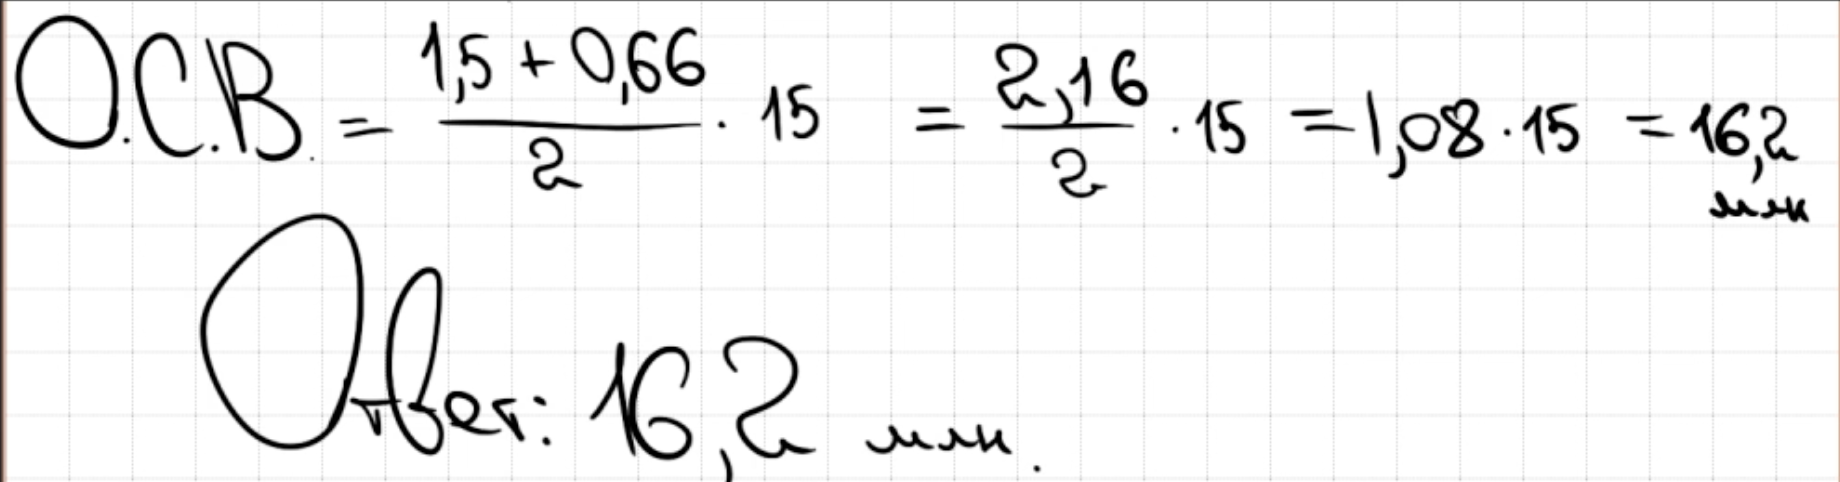 О.С.В. = (1,5 + 0,66)/2 · 15 = 2,16/2 · 15 = 1,08 · 15 = 16,2 млн
Ответ: 16,2 млн.